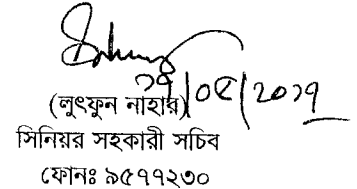 ২৭/০৫/২০১৭
(লুৎফুন নাহার)
সিনিয়র সহকারী সচিব
ফোনঃ ৯৫৭৭২৩০